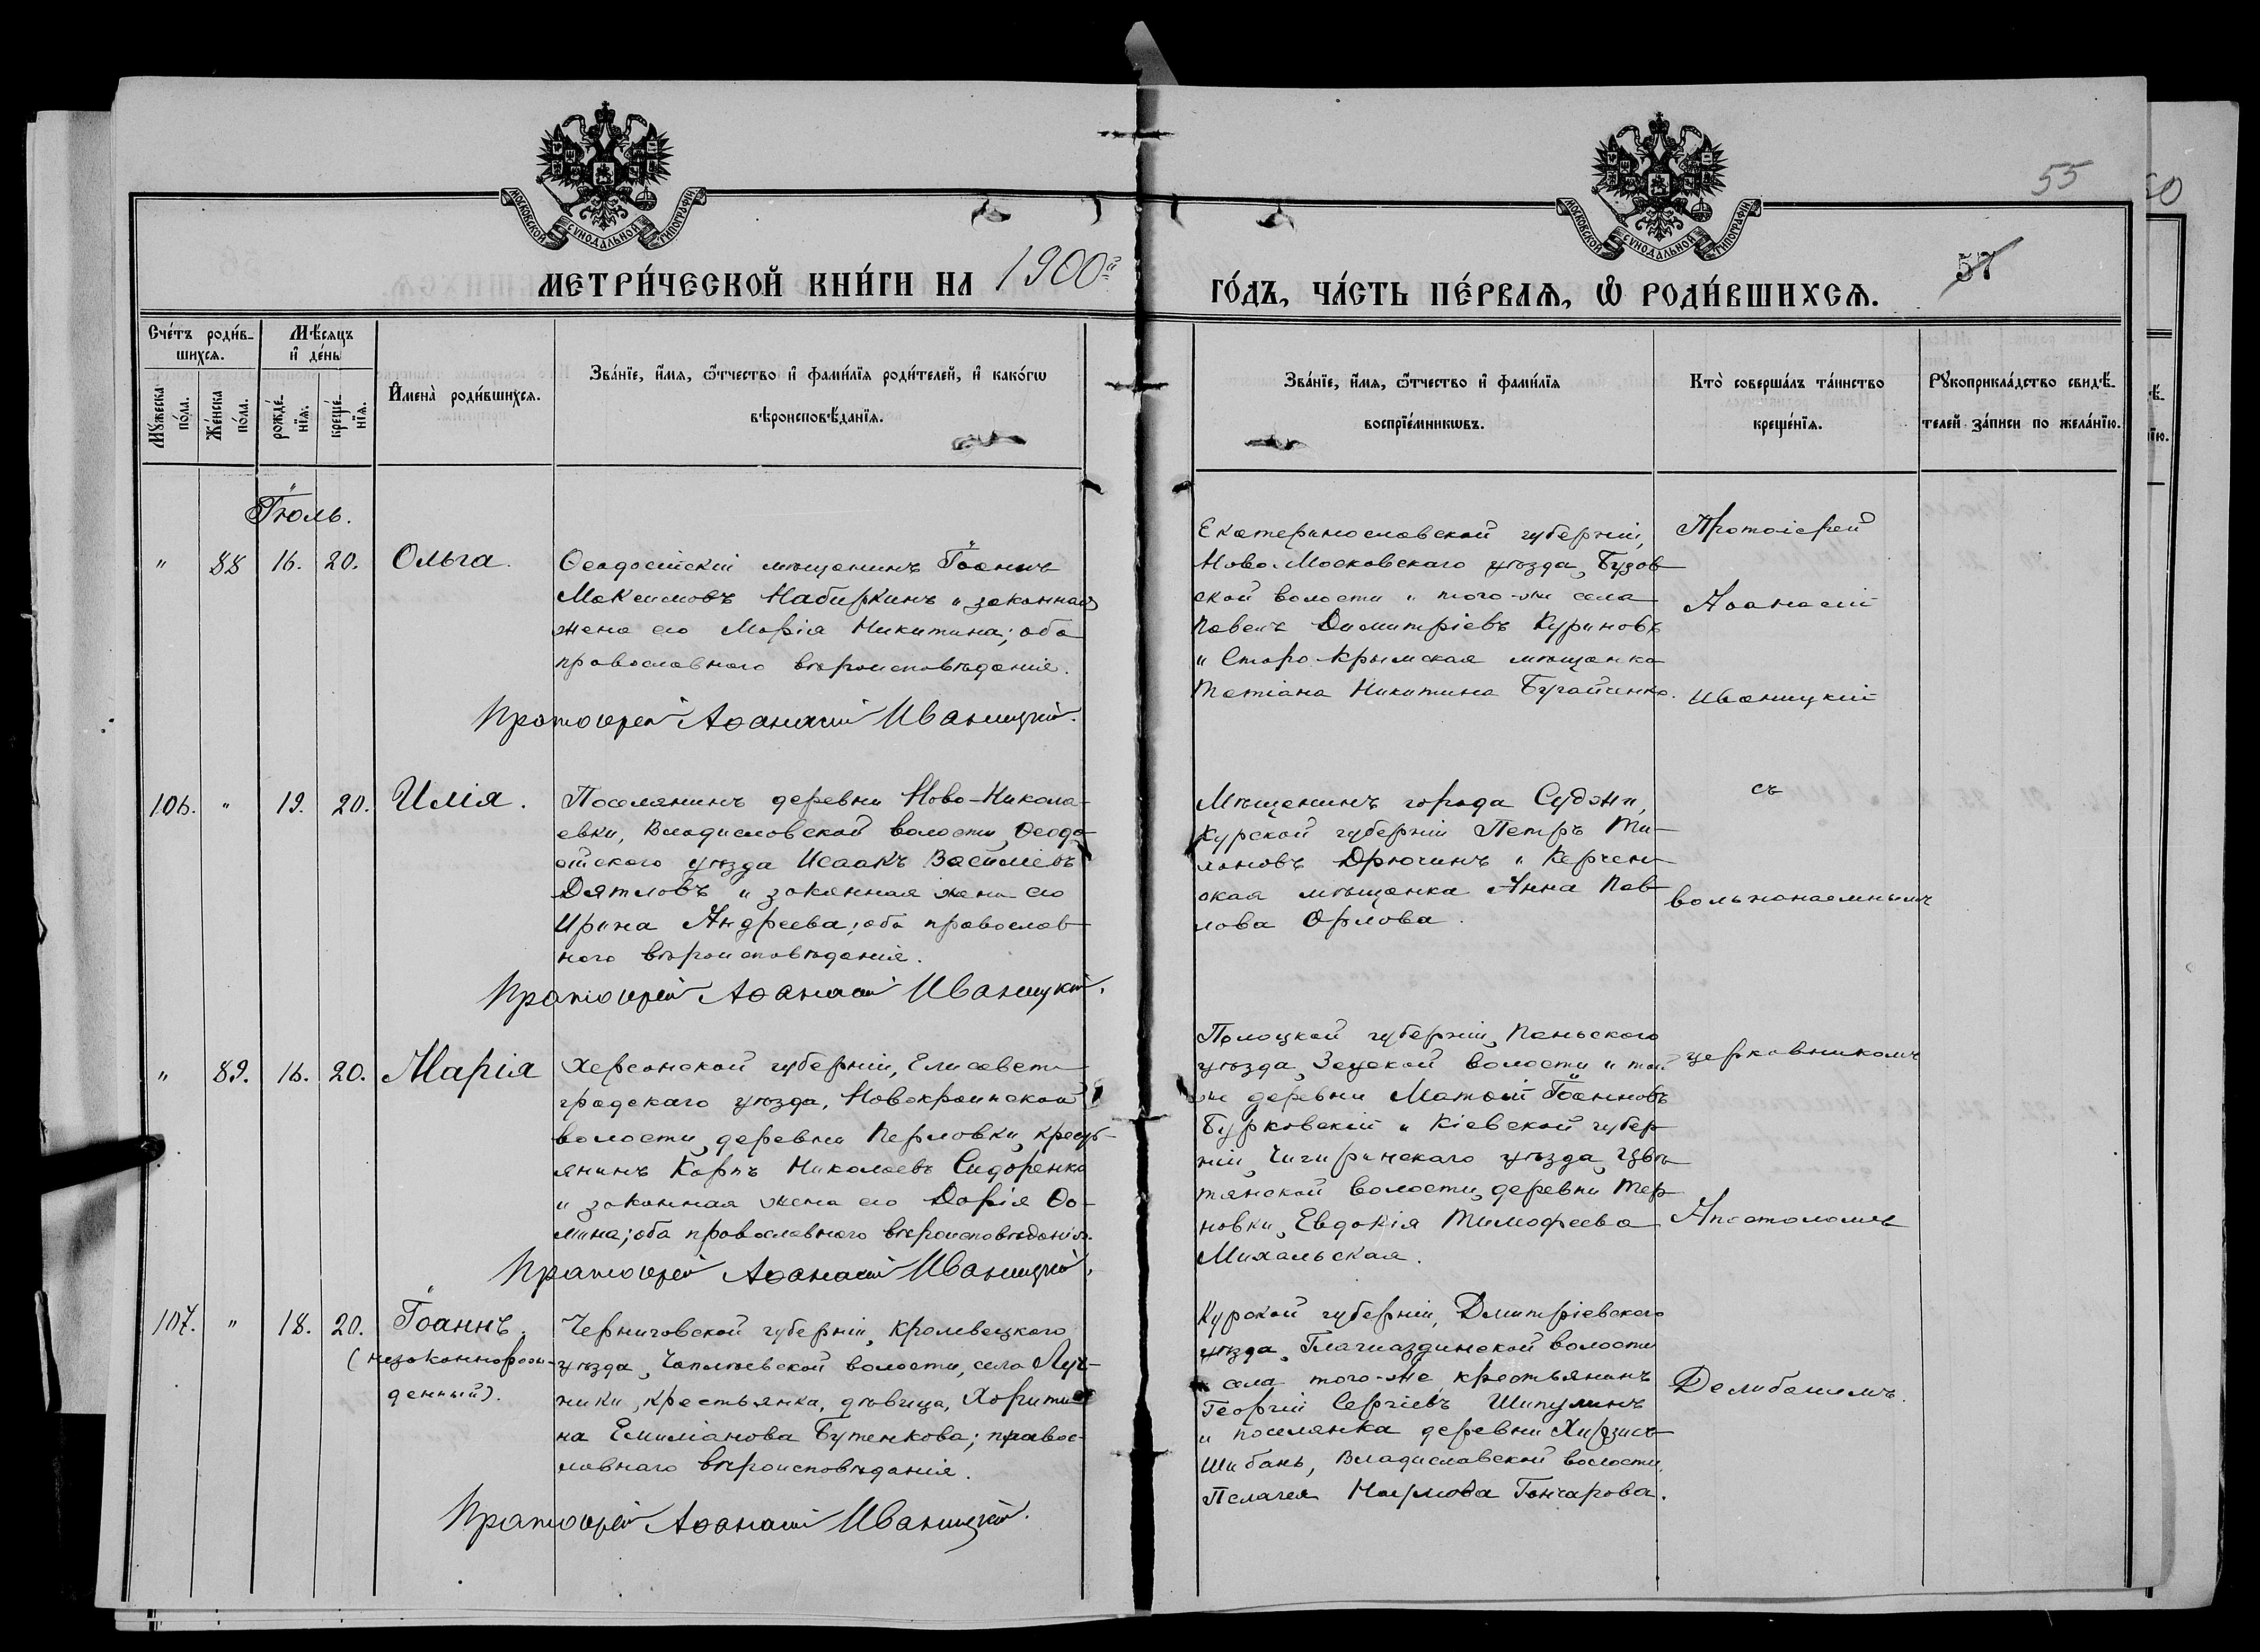 МОСКОВСКОЙ СѴНОДАЛЬНОЙ ТИПОГРАФІИ
МОСКОВСКОЙ СѴНОДАЛЬНОЙ ТИПОГРАФІИ
55
50
МЕТРИ́ЧЕСКОЙ КНИ́ГИ НА 1900й ГО́ДЪ, ЧА́СТЬ ПЕ́РВАѦ, Ѡ РОДИ́ВШИХСѦ.
57
Сче́тъ роди́в-
шихсѧ.
Мѣ́сяцъ
и҆ де́нь
Мꙋ́жеска по́ла.
Же́нска по́ла.
рожде́-
нїѧ.
креще́-
нїѧ.
И҆мена̀ роди́вшихсѧ.
Зва́нїе, и҆́мѧ, ѻ҆́тчество и҆ фами́лїѧ роди́телей, и҆ како́гѡ
вѣроисповѣ́данїѧ.
Зва́нїе, и҆́мѧ, ѻ҆́тчество и҆ фами́лїѧ
воспрїе́мникѡвъ.
Кто̀ соверша́лъ та́инство
креще́нїѧ.
Рꙋкоприкла́дство свидѣ́-
телей за́писи по жела́нїю.
Іюль.
" 88 16. 20. Ольга.
Ѳеодосійскій мѣщанинъ Іоаннъ
Максимовъ Набиркинъ и законная
жена его Марія Никитина; оба
православнаго вѣроисповѣданія.
Протоіерей Аѳанасій Иваницкій.
Екатеринославской губерніи,
Ново-Московскаго уѣзда, Бузов-
ской волости и того-же села
Павелъ Димитріевъ Куриновъ
и Старо-Крымская мѣщанка
Татіана Никитина Бугайченко.
Протоіерей
Аѳанасій
Иваницкій
106. " 19. 20. Илія.
Поселянинъ деревни Ново-Никола-
евки, Владиславской волости, Ѳеодо-
сійскаго уѣзда Исаакъ Василіевъ
Дятловъ и законная жена его
Ирина Андреева; оба православ-
наго вѣроисповѣданія.
Протоіерей Аѳанасій Иваницкій.
Мѣщанинъ города Суджи,
Курской губерніи Петръ Ти-
хоновъ Дрючинъ и Керчен-
ская мѣщанка Анна Пав-
лова Орлова.
съ
вольнонаемнымъ
" 89. 16. 20. Марія
Херсонской губерніи, Елисавет-
градскаго уѣзда, Новокраинской
волости, деревни Перловки, кресть-
янинъ Карпъ Николаевъ Сидоренко
и законная жена его Дарія Ѳо-
мина; оба православнаго вѣроисповѣданія.
Протоіерей Аѳанасій Иваницкій.
Полоцкой губерніи,
уѣзда, волости и той
же деревни Матѳій Іоанновъ
Бурковскій и Кіевской губер-
ніи, Чигиринскаго уѣзда, Цвѣ-
тянской волости, деревни Тер-
новки, Евдокія Тимофеева
Михальская.
церковникомъ
Апостоломъ
107. " 18. 20. Іоаннъ
(незаконнорож-
денный).
Черниговской губерніи, Кролевецкаго
уѣзда, Чаплѣевской волости, села Луч-
ники, крестьянка, дѣвица, Харити-
на Емиліанова Бутенкова; правос-
лавнаго вѣроисповѣданія.
Протоіерей Аѳанасій Иваницкій.
Курской губерніи, Дмитріевскаго
уѣзда, волости
села того-же крестьянинъ
Георгій Сергіевъ Шипулинъ
и поселянка деревни Хырзисъ-
Шибань, Владиславской волости,
Пелагея Наумова Гончарова.
Делибашемъ.